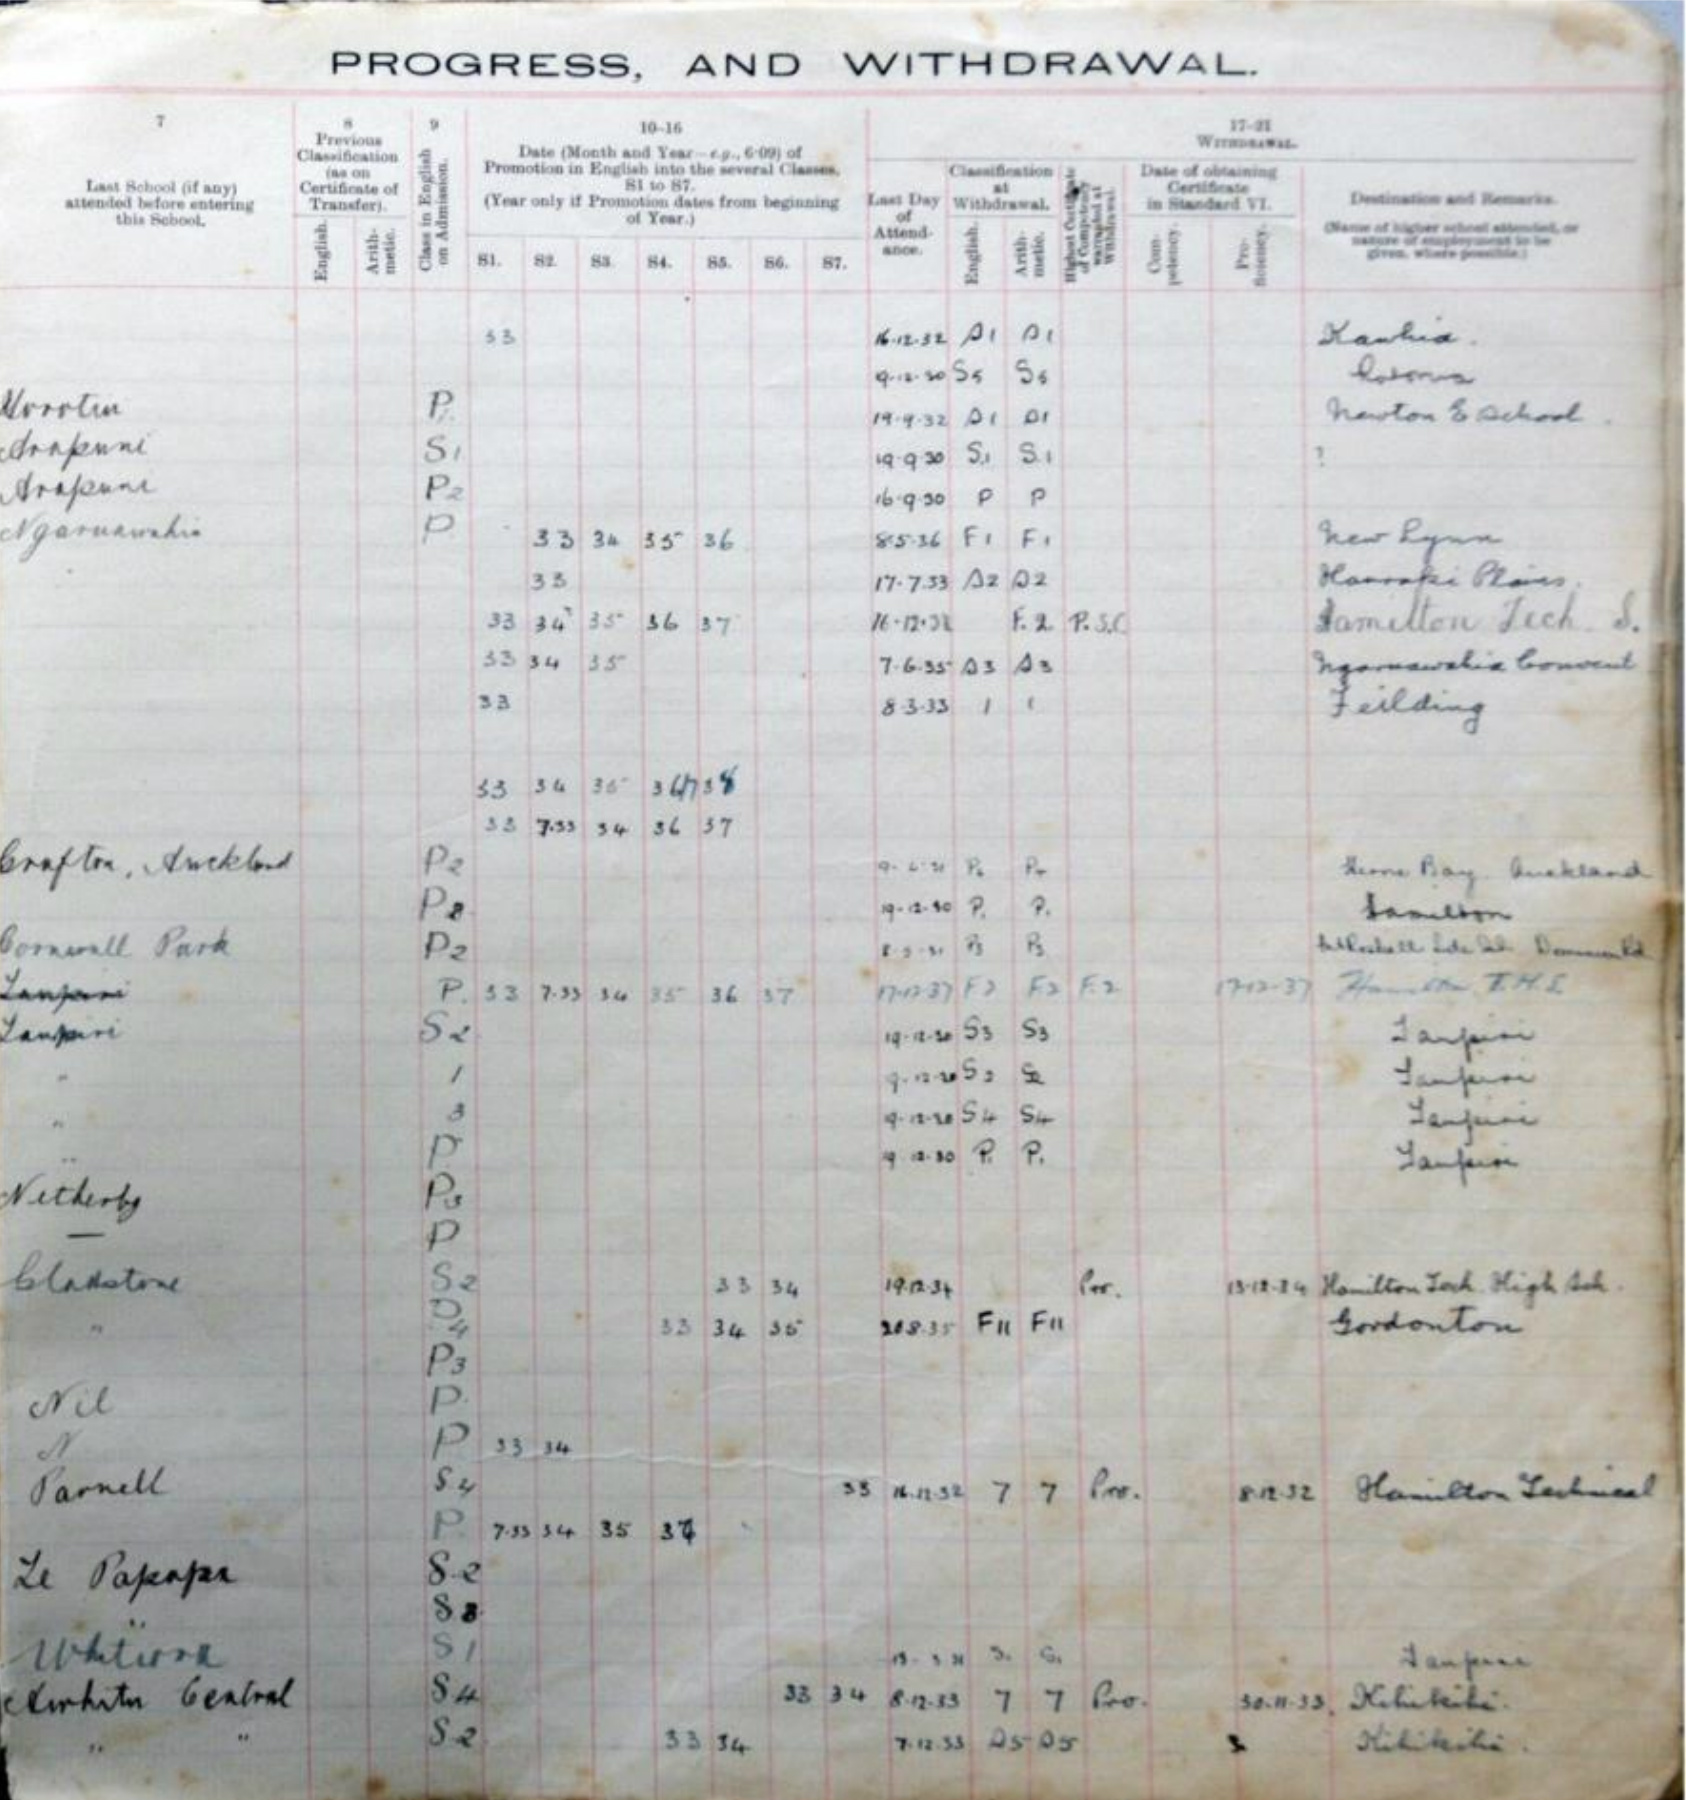 PROGRESS, AND WITHDRAWAL.
7 8 9 10-16 17-21
Last School (if any) attended before entering this School.
Previous Classification (as on Certificate of Transfer).
English. Arith-metic.
Class in English on Admission.
Date (Month and Year—e.g., 6·09) of Promotion in English into the several Classes, S1 to S7.
(Year only if Promotion dates from beginning of Year.)
S1. S2. S3. S4. S5. S6. S7.
WITHDRAWAL.
Last Day of Attend-ance.
Classification at Withdrawal.
English. Arith-metic.
Highest Certificate of Competency Withdrawal.
Date of obtaining Certificate in Standard VI.
Com-petency. Pro-ficiency.
Destination and Remarks.
(Name of higher school attended, or nature of employment to be given, where possible.)
33 16.12.32 S1 S1 Kawhia.
S5 S5
P1. 19.9.32 S1 S1 Newton E School
Arapuni S1 19.9.30 S.1 S.1 ?
Arapuni P2 16.9.30 P P
Ngaruawahia P 33 34 35 36 8.5.36 F1 F1 New Lynn
33 17.7.33 S2 S2 Hauraki Plains.
33 34 35 36 37 F.2 P.S.C Hamilton Tech. S.
33 34 35 7.6.35 S3 S3 Ngaruawahia Convent
33 8.3.33 1 1 Feilding
33 34 35 38
33 7.33 34 36 37
Grafton, Auckland P2 Herne Bay Auckland
19.12.30 P. P. Hamilton
Cornwall Park P2 P3 P3
Taupiri P. 33 7.33 34 35 36 37 17.12.37 F2 F.2 F.2 17.12.37 Hamilton T.H.S
Taupiri S2 19.12.30 S3 S3 Taupiri
" 1 Taupiri
" 3 S4 S4 Taupiri
" P P. P. Taupiri
Netherby P3
— P
Gladstone S2 33 34 19.12.34 Pro. 13.12.34 Hamilton Tech. High Sch.
" 33 34 35 20.8.35 F11 F11 Gordonton
P3
Nil P.
N P 33 34
Parnell S4 33 16.12.32 7 7 Pro. 8.12.32 Hamilton Technical
P. 7.33 34 35
Te Papapa S2
" S3
Whitiora S1 Taupiri
Awhitu Central S4 33 34 8.12.33 7 7 Pro. 30.11.33. Kihikihi.
" " S2 33 34 7.12.33 S5 S5 Kihikihi.